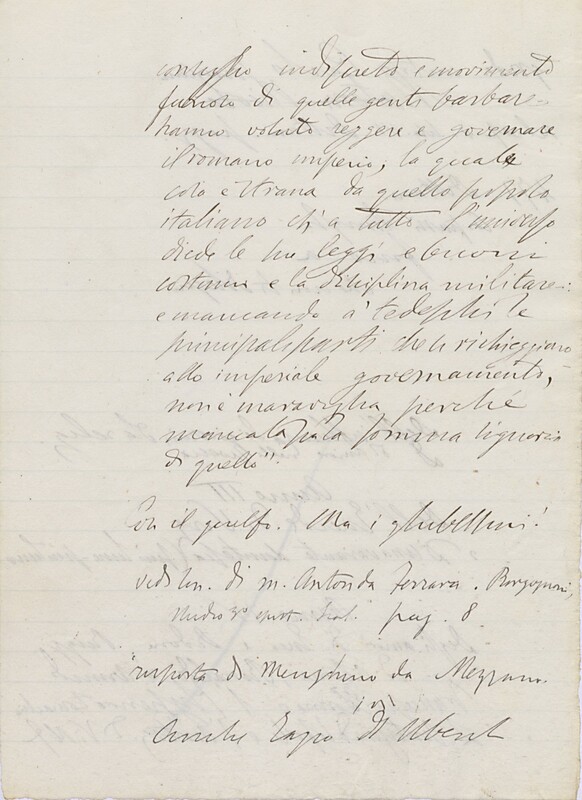 consiglio indiscreto e movimento
furioso di quelle genti barbare
hanno voluto reggere e governare
il romano imperio, la quale
cosa è strana da quello popolo
italiano ch'a tutto l'universo
diede le sue leggi e buoni
costumi e la disciplina militare:
e mancando a' tedeschi le
principali parti che si richieggiono
allo imperiale governamento,
non è maraviglia perché
mancata sia la somma signoria
di quello".
il guelfo. Ma i ghibellini!
Vedi son. di m. Antonio da Ferrara. Borgognoni,
Studio 3° pag. 8.
risposta di Menghino da Mezzano.
ivi
Anche Fazio d. Uberti